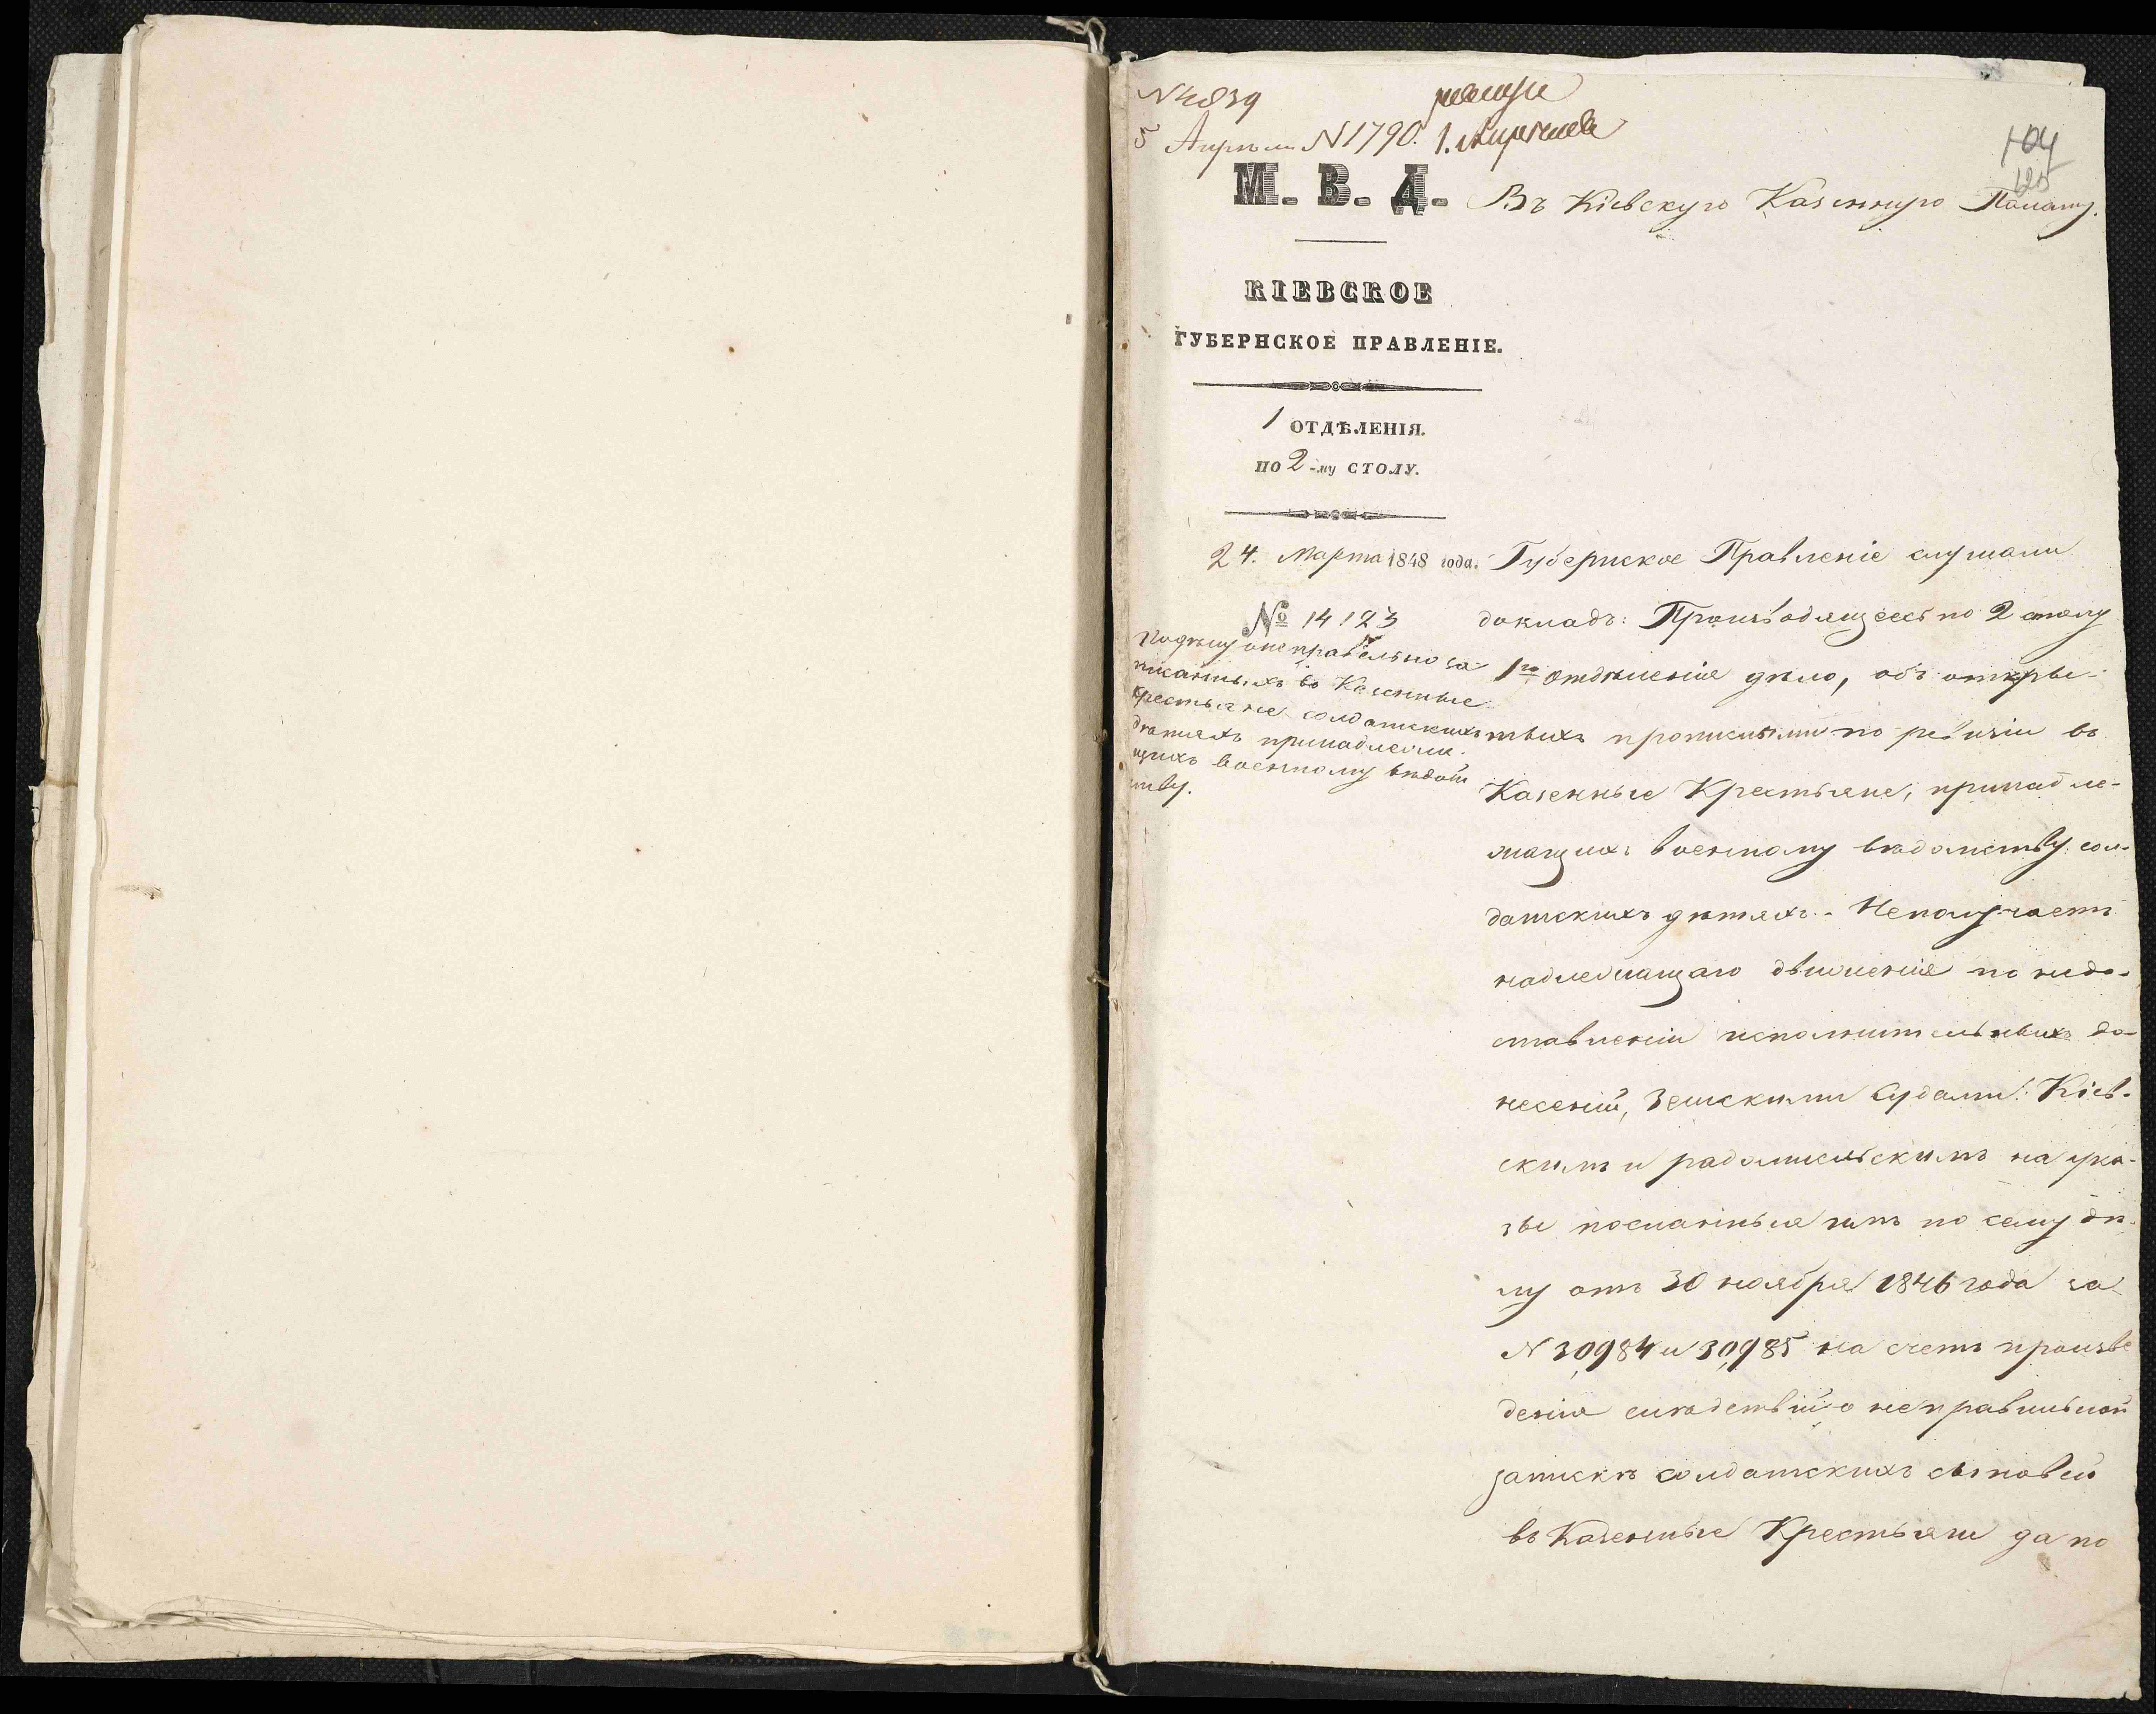 N 4839
5 Апрѣля N 1790.
104
125
М. В. Д.
Въ Кіевскую Казенную Палату.
КІЕВСКОЕ
ГУБЕРНСКОЕ ПРАВЛЕНІЕ.
1 ОТДѢЛЕНІЯ.
ПО 2-му СТОЛУ.
24. Марта 1848 года.
№ 14123
По дѣлу о неправильно за-
писанныхъ въ Казенные
крестьяне солдатскихъ
дѣтяхъ принадлежа-
щихъ военному вѣдом
ству.
Губернское Правленіе слушали
докладъ: Производящееся по 2 столу
1го отдѣленія дѣло, объ откры-
тыхъ прописными по ревизіи въ
Казенные Крестьяне, принадле-
жащихъ военному вѣдомству сол-
датскихъ дѣтяхъ. Неполучаетъ
надлежащаго движенія по недо-
ставленіи исполнительныхъ до-
несеній, Земскими Судами: Кіев-
скимъ и радомысльскимъ на ука-
зы посланныя имъ по сему дѣ-
лу отъ 30 ноября 1846 года за
N 30984 и 30985 на счетъ произве
денія слѣдствій о неправильной
запискѣ солдатскихъ сыновей
въ Казенные Крестьяне да по